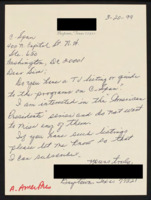 3-20-99
C-Span
400 N. Capitol St. N.W.
Ste. 650
Washington, DC 20001
Dear Sirs,
Do you have a TV listing or guide
to the programs on C-Span?
I am interested in the "American
Presidents" series and do not want
to miss any of them.
If you have such listings
please let me know so that
I can subscribe.
A. AmerPres